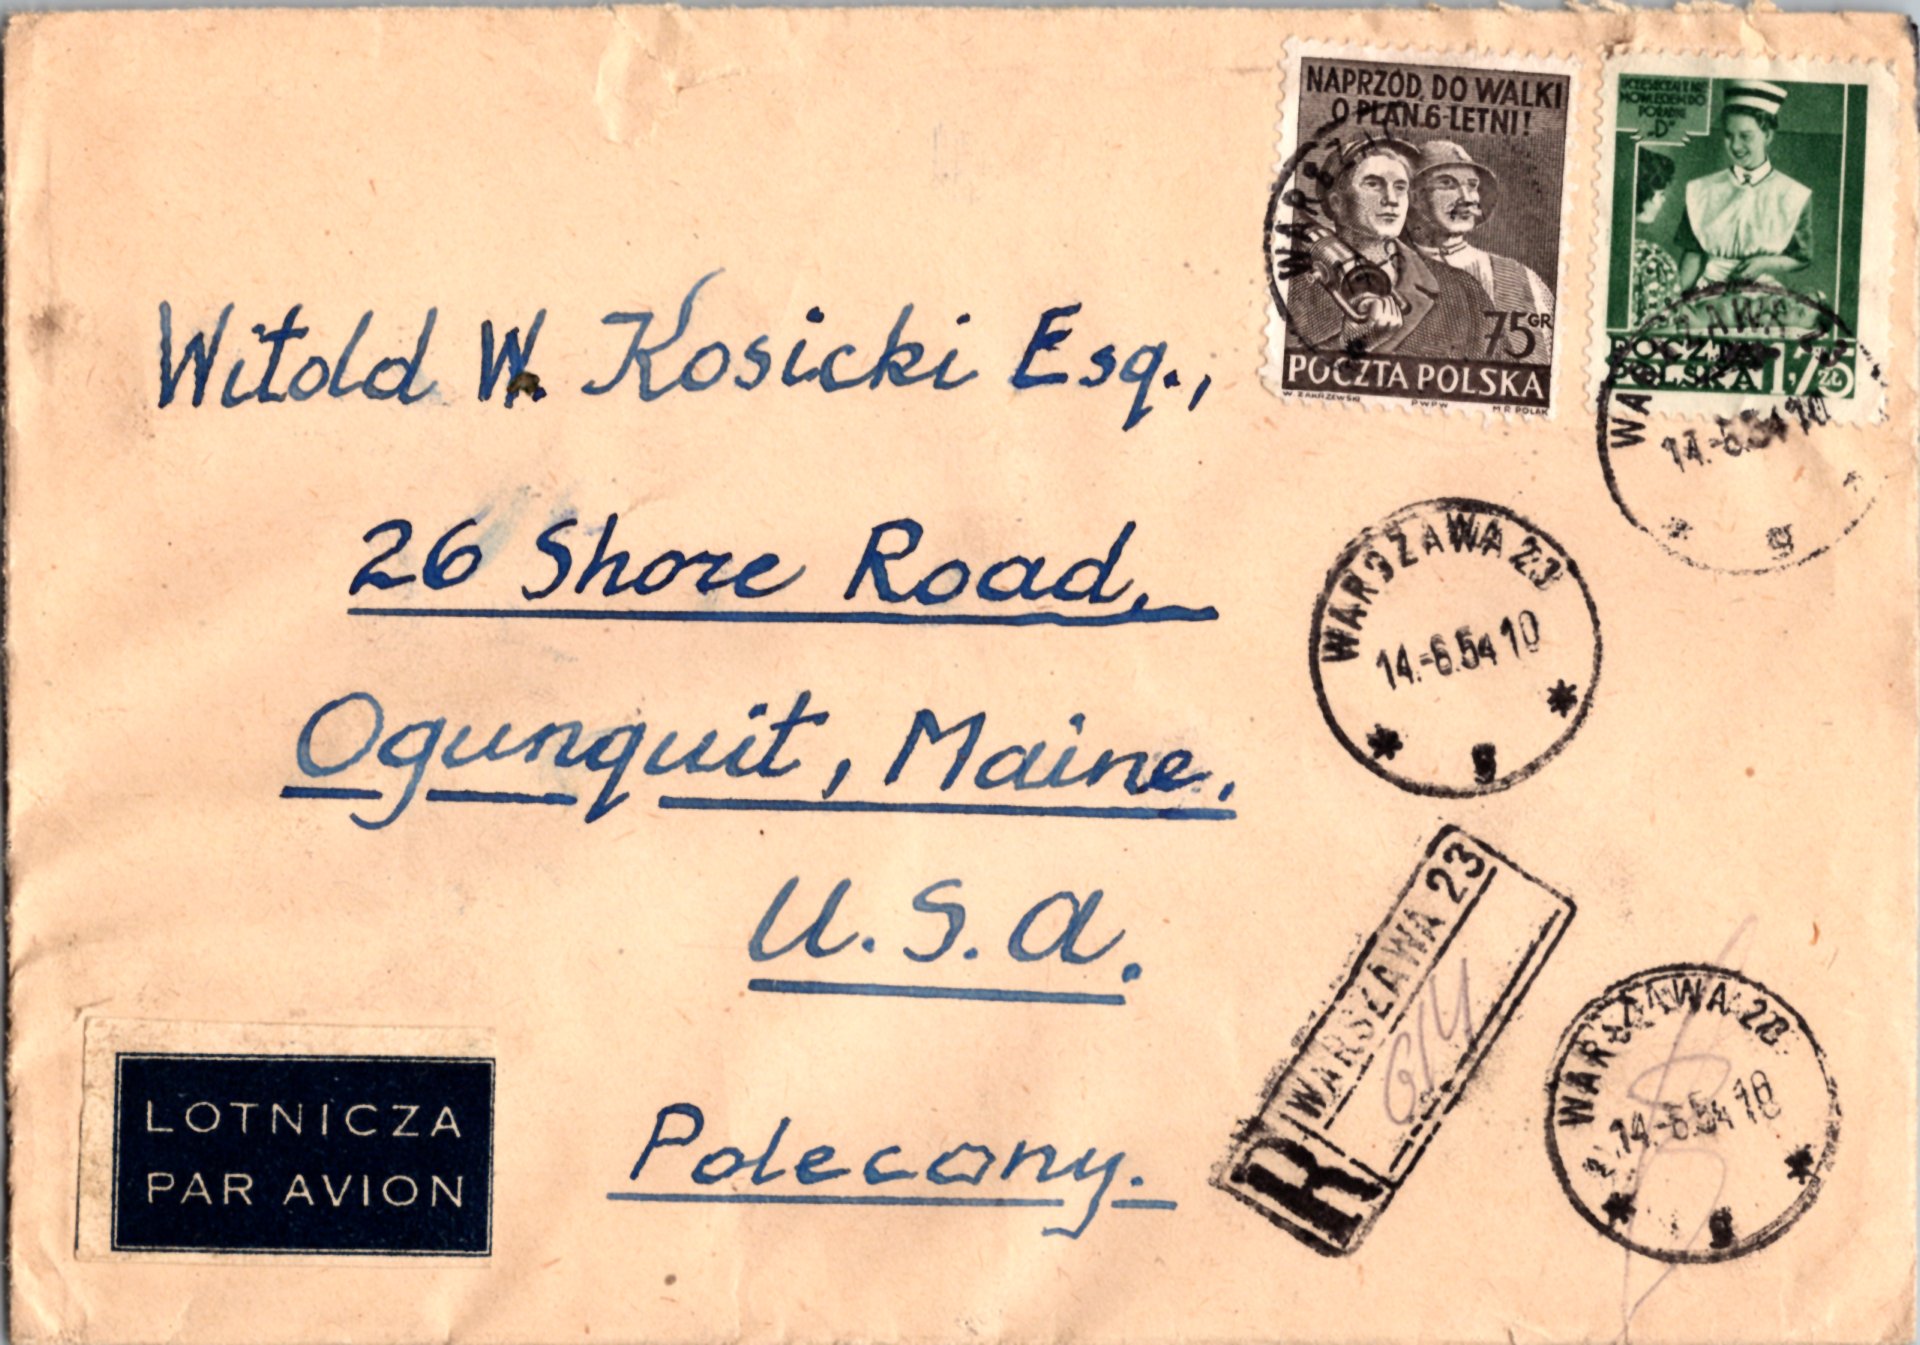 NAPRZÓD, DO WALKI
O PLAN 6-LETNI!
75 GR
POCZTA POLSKA
W ZAKRZEWSKI PWPW M R POLAK
"D"
POCZTA
POLSKA 1,75 ZŁ
WARSZ
WARSZAWA 23
14.-6.54 10
g
Witold W. Kosicki Esq.,
26 Shore Road,
Ogunquit, Maine,
U.S.A.
Polecony.
WARSZAWA 23
14.-6.54 10
g
R WARSZAWA 23
614
WARSZAWA 23
14.-6.54 10
g
LOTNICZA
PAR AVION